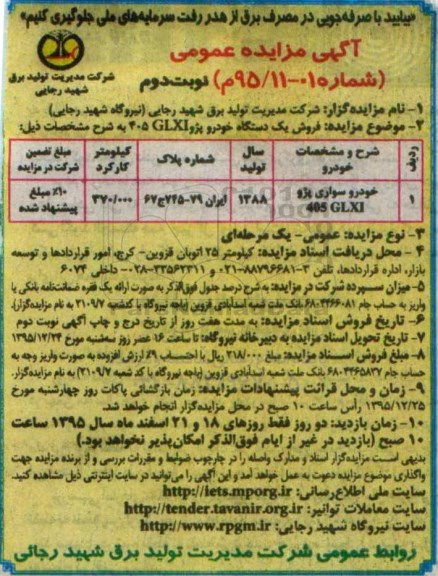 «بیایید با صرفه‌جویی در مصرف برق از هدر رفت سرمایه‌های ملی جلوگیری کنیم»
آگهی مزایده عمومی
(شماره ۰۱-۹۵/۱۱م) نوبت دوم
شرکت مدیریت تولید برق
شهید رجایی
۱- نام مزایده‌گزار: شرکت مدیریت تولید برق شهید رجایی (نیروگاه شهید رجایی)
۲- موضوع مزایده: فروش یک دستگاه خودرو پژو GLXI ۴۰۵ به شرح مشخصات ذیل:
ردیف | شرح و مشخصات خودرو | سال تولید | شماره پلاک | کیلومتر کارکرد | مبلغ تضمین شرکت در مزایده
۱ | خودرو سواری پژو 405 GLXI | ۱۳۸۸ | ایران ۷۹-۷۴۵ج۶۷ | ۳۷۰/۰۰۰ | ۱۰٪ مبلغ پیشنهاد شده
۳- نوع مزایده: عمومی- یک مرحله‌ای
۴- محل دریافت اسناد مزایده: کیلومتر ۲۵ اتوبان قزوین- کرج، امور قراردادها و توسعه
بازار، اداره قراردادها، تلفن ۳-۸۸۷۹۶۶۸۱-۰۲۱ و ۳۳۵۶۲۳۱۱-۰۲۸ داخلی ۶۰۷۴
۵- میزان سپرده شرکت در مزایده: به شرح درصد جدول فوق‌الذکر به صورت ارائه یک فقره ضمانتنامه بانکی یا
واریز به حساب جام ۶۸۰۴۴۶۶۰۸۱ بانک ملت شعبه اسدآبادی قزوین (باجه نیروگاه با کدشعبه ۲۱۰۹/۷ به نام مزایده‌گزار).
۶- تاریخ فروش اسناد مزایده: به مدت هفت روز از تاریخ درج و چاپ آگهی نوبت دوم
۷- تاریخ تحویل اسناد مزایده به دبیرخانه نیروگاه: تا ساعت ۱۶ عصر روز سه‌شنبه مورخ ۱۳۹۵/۱۲/۲۴
۸- مبلغ فروش اسناد مزایده: مبلغ ۲۱۸/۰۰۰ ریال با احتساب ۹٪ ارزش افزوده به صورت واریز وجه به
حساب جام ۶۸۰۴۴۶۵۸۳۷ بانک ملت شعبه اسدآبادی قزوین (باجه نیروگاه با کد شعبه ۲۱۰۹/۷) به نام مزایده‌گزار.
۹- زمان و محل قرائت پیشنهادات مزایده: زمان بازگشائی پاکات روز چهارشنبه مورخ
۱۳۹۵/۱۲/۲۵ رأس ساعت ۱۰ صبح در محل مزایده‌گزار انجام خواهد شد.
۱۰- زمان بازدید: دو روز فقط روزهای ۱۸ و ۲۱ اسفند ماه سال ۱۳۹۵ ساعت
۱۰ صبح (بازدید در غیر از ایام فوق‌الذکر امکان‌پذیر نخواهد بود.)
بدیهی است مزایده‌گزار اسناد و مدارک واصله را در چارچوب ضوابط و مقررات بررسی و از برنده مزایده جهت
واگذاری موضوع مزایده دعوت به عمل خواهد آمد و این آگهی را می‌توانید در سایت اینترنتی ذیل مشاهده کنید.
سایت ملی اطلاع‌رسانی: http://iets.mporg.ir
سایت معاملات توانیر: http://tender.tavanir.org.ir
سایت نیروگاه شهید رجایی: http://www.rpgm.ir
روابط عمومی شرکت مدیریت تولید برق شهید رجائی